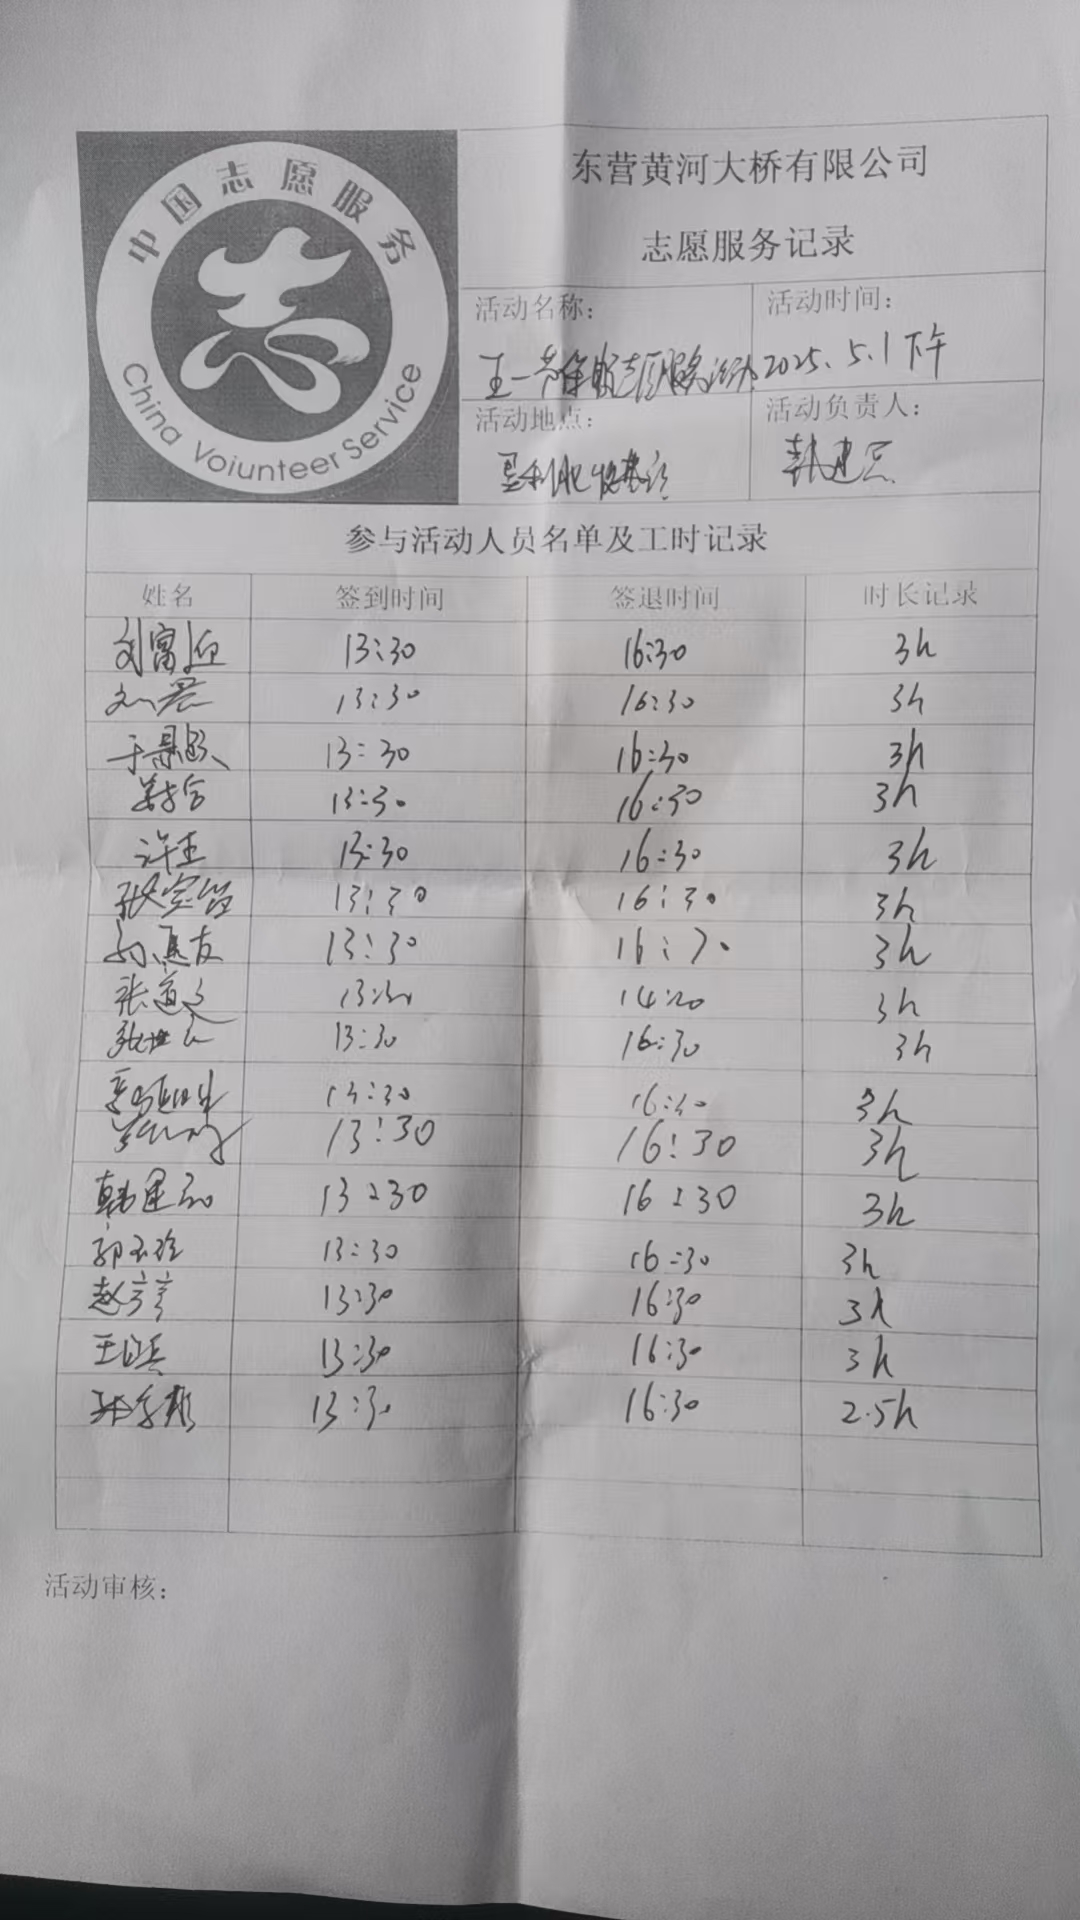 中国志愿服务
志
China Voiunteer Service
东营黄河大桥有限公司
志愿服务记录
活动名称：
活动时间：
五一节保畅志愿服务活动 2025.5.1下午
活动地点：
活动负责人：
垦利北收费站
韩建
参与活动人员名单及工时记录
姓名 签到时间 签退时间 时长记录
刘富迎 13:30 16:30 3h
13:30 16:30 3h
于 13:30 16:30 3h
13:30 16:30 3h
许玉 13:30 16:30 3h
张宝 13:30 16:30 3h
孙 友 13:30 16:30 3h
张道文 13:30 3h
张世 13:30 16:30 3h
13:30 16:30 3h
13:30 16:30 3h
韩建 13:30 16:30 3h
郭玉珍 13:30 16:30 3h
赵亨亨 13:30 16:30 3h
王 兵 13:30 16:30 3h
13:30 16:30 2.5h
活动审核：